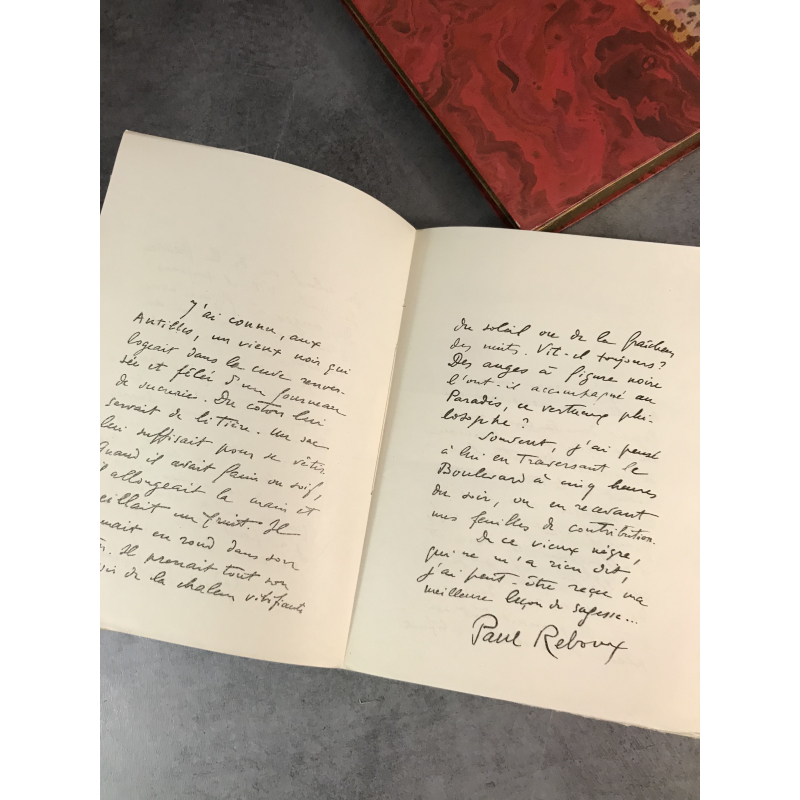 J'ai connu, aux
Antilles, un vieux noir qui
logeait dans la cuve renver-
sée et fêlée d'un fourneau
de sucrerie. Du coton lui
servait de litière. Un sac
lui suffisait pour se vêtir.
Quand il avait faim ou soif,
il allongeait la main et
eillait un fruit. Il
mait en rond dans son
. Il prenait tout son
de la chaleur vivifiante
du soleil ou de la fraîcheur
des nuits. Vit-il toujours ?
Des anges à figure noire
l'ont-il accompagné au
Paradis, ce vertueux phi-
losophe ?
Souvent, j'ai pensé
à lui en traversant le
Boulevard à cinq heures
du soir, ou en recevant
mes feuilles de contribution.
De ce vieux nègre,
qui ne m'a rien dit,
j'ai peut-être reçu ma
meilleure leçon de sagesse...
Paul Reboux